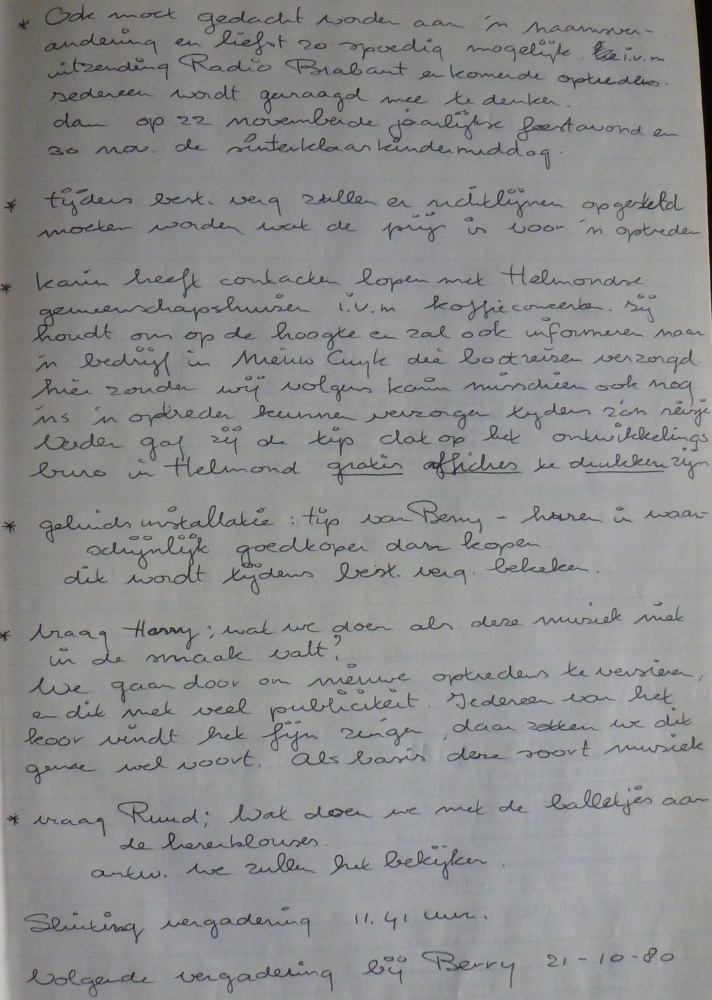 * Ook moet gedacht worden aan 'n naamsver-
andering en liefst zo spoedig mogelijk i.v.m
uitzending Radio Brabant en komende optredens.
Iedereen wordt gevraagd mee te denken.
dan op 22 november de jaarlijkse feestavond en
30 nov. de sinterklaaskindermiddag.
* tijdens best. verg zullen er richtlijnen opgesteld
moeten worden wat de prijs is voor 'n optreden
* Karin heeft contacten lopen met Helmondse
gemeenschapshuizen i.v.m koffieconcerten. Zij
houdt ons op de hoogte en zal ook informeren naar
'n bedrijf in Nieuw Cuyk die bootreizen verzorgd.
hier zouden wij volgens Karin misschien ook nog
'ns 'n optreden kunnen verzorgen tijdens zo'n reisje
Verder gaf zij de tip dat op het ontwikkelings
buro in Helmond gratis affiches te drukken zijn
* geluidsinstallatie: tip van Berry - huren is waar-
schijnlijk goedkoper dan kopen.
dit wordt tijdens best. verg. bekeken.
* Vraag Harry; wat we doen als deze muziek niet
in de smaak valt?
We gaan door om nieuwe optredens te versieren,
en dit met veel publiciteit. Iedereen van het
koor vindt het fijn zingen, daar zetten we dit
genre wel voort. Als basis deze soort muziek
* vraag Ruud; Wat doen we met de balletjes aan
de herenblouses.
antw. We zullen het bekijken.
Sluiting vergadering 11.41 uur.
Volgende vergadering bij Berry 21-10-80